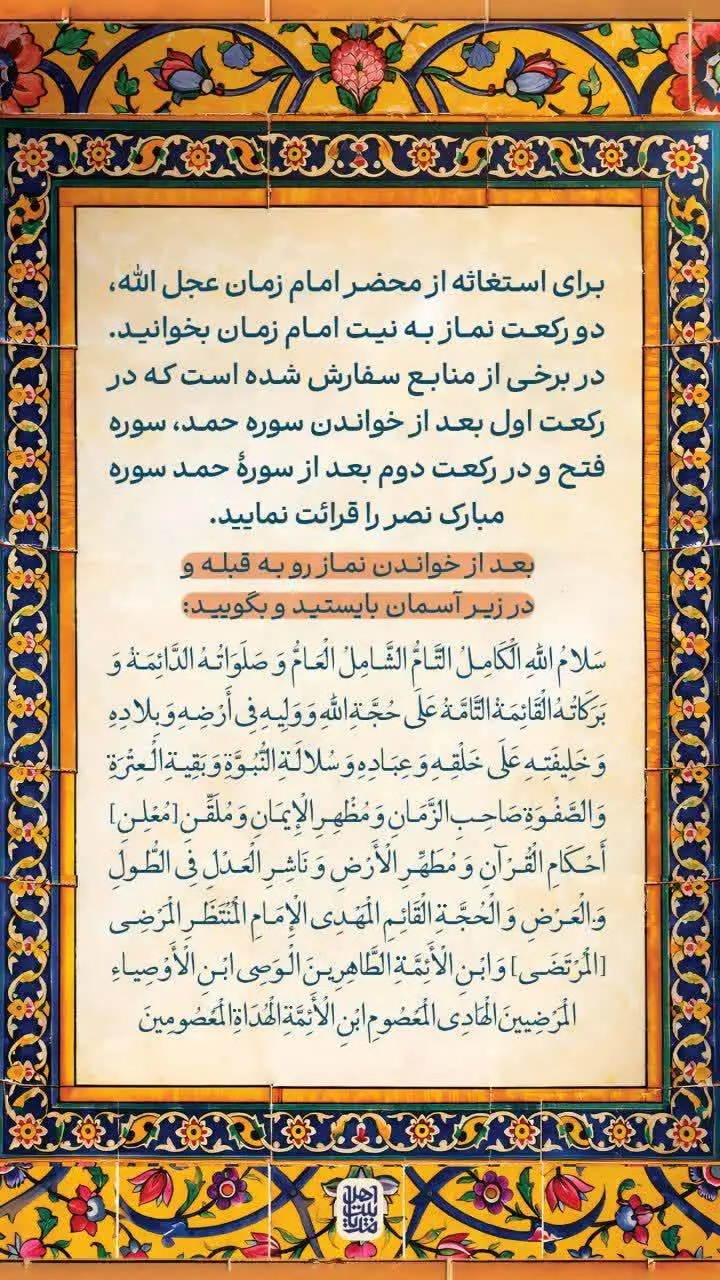 برای استغاثه از محضر امام زمان عجل الله،
دو رکعت نماز به نیت امام زمان بخوانید.
در برخی از منابع سفارش شده است که در
رکعت اول بعد از خواندن سوره حمد، سوره
فتح و در رکعت دوم بعد از سورهٔ حمد سوره
مبارک نصر را قرائت نمایید.
بعد از خواندن نماز رو به قبله و
در زیر آسمان بایستید و بگویید:
سَلامُ اللهِ الْكَامِلُ التَّامُّ الشَّامِلُ الْعَامُّ وَ صَلَوَاتُهُ الدَّائِمَةُ وَ
بَرَكَاتُهُ الْقَائِمَةُ التَّامَّةُ عَلَى حُجَّةِ اللهِ وَ وَلِيِهِ فِى أَرْضِهِ وَ بِلادِهِ
وَ خَلِيفَتِهِ عَلَى خَلْقِهِ وَ عِبَادِهِ وَ سُلالَةِ النُّبُوَّةِ وَ بَقِيةِ الْعِتْرَةِ
وَ الصَّفْوَةِ صَاحِبِ الزَّمَانِ وَ مُظْهِرِ الْإِيمَانِ وَ مُلَقِّنِ [مُعْلِنِ]
أَحْكَامِ الْقُرْآنِ وَ مُطَهِّرِ الْأَرْضِ وَ نَاشِرِ الْعَدْلِ فِى الطُّولِ
وَ الْعَرْضِ وَ الْحُجَّةِ الْقَائِمِ الْمَهْدِى الْإِمَامِ الْمُنْتَظَرِ الْمَرْضِى
[الْمُرْتَضَى] وَ ابْنِ الْأَئِمَّةِ الطَّاهِرِينَ الْوَصِى ابْنِ الْأَوْصِياءِ
الْمَرْضِيينَ الْهَادِى الْمَعْصُومِ ابْنِ الْأَئِمَّةِ الْهُدَاةِ الْمَعْصُومِينَ